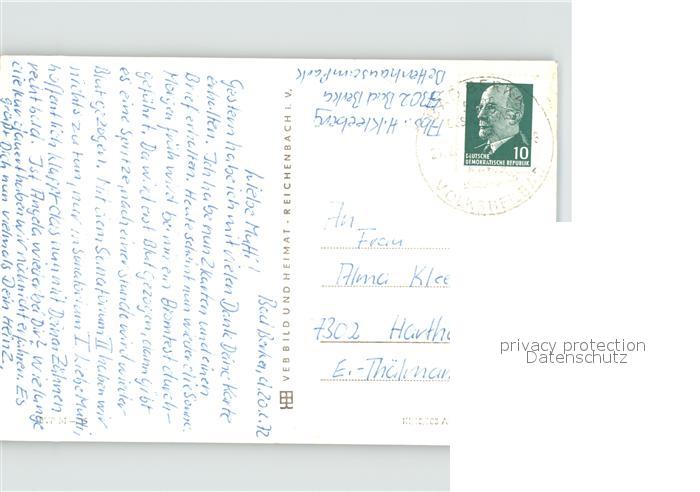 Bad Berka, d. 20.1.72
Liebe Mutti!
Gestern habe ich mit vielen Dank Deine Karte
erhalten. Ich habe nun 2 Karten und einen
Brief erhalten. Heute scheint nun wieder die Sonne.
Morgen früh wird bei mir ein Bromtest durch-
geführt. Da wird erst Blut gezogen, dann gibt
es eine Spritze, nach einer Stunde wird wieder
Blut gezogen. Mit dem Sanatorium II haben wir
nichts zu tun, nur im Sanatorium I. Liebe Mutti,
hoffentlich klappt das nun mit Deinen Zähnen
recht bald. Ist Angela wieder bei Dir? Wie lange
die Kur dauert haben wir noch nicht erfahren. Es
grüßt Dich nun vielmals Dein Heinz.
VEB BILD UND HEIMAT · REICHENBACH I. V.
Abs.: H. Kleeberg
7302 Bad Berka
10
DEUTSCHE
DEMOKRATISCHE REPUBLIK
An
Frau
Alma Klee
7302 Hartha
E.-Thälman
privacy protection
Datenschutz